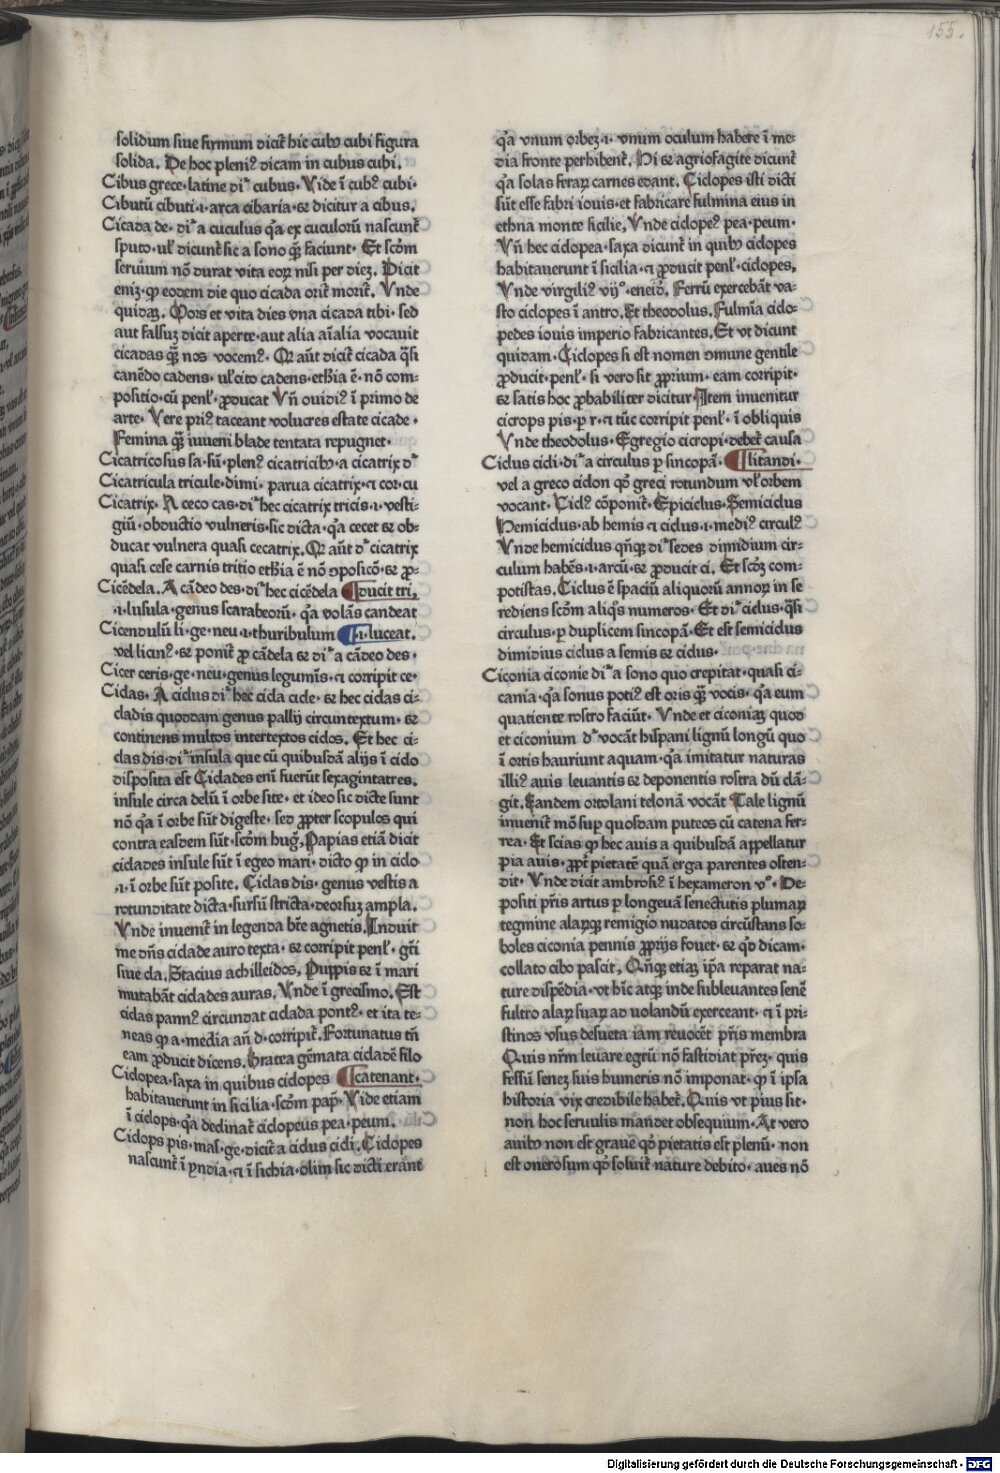 155.
solidum siue firmum dicit̃ hic cubꝰ cubi figura
solida. De hoc pleniꝰ dicam in cubus cubi.
Cibus grece·latine di᷑ cubus. Vide ĩ cubꝰ cubi·
Cibutũ cibuti·ı·arca cibaria·⁊ dicitur a cibus.
Cicada de· di᷑ a cuculus q̃a ex cuculorũ nascunt̃
sputo·ul᷑ dicunt̃ sic a sono quẽ faciunt· Et scõm
seruium nõ durat vita eoꝝ nisi per dieꝫ. Dicit
eniꝫ·ꝙ eodem die quo cicada orit̃ morit̃. Vnde
quidaꝫ. Mors et vita dies vna cicada tibi· sed
aut falsuꝫ dicit aperte·aut alia aĩalia vocauit
cicadas quẽ nos vocemꝰ. Ql aũt dicit̃ cicada q̃si
canẽdo cadens· ul᷑cito cadens·ethĩa ẽ·nõ com-
positio·cũ penl᷑·ꝓducat Vñ ouidiꝰ ĩ primo de
arte· Vere priꝰ taceant volucres estate cicade·
Femina quẽ iuueni blade tentata repugnet·
Cicatricosus sa·sũ·plenꝰ cicatricibꝰ·a cicatrix d᷑
Cicatricula tricule·dimi·parua cicatrix·⁊ cor·cu
Cicatrix· A ceco cas·di᷑ hec cicatrix tricis·ı·vesti-
giũ·obductio vulneris·sic dicta·q̃a cecet ⁊ ob-
ducat vulnera quasi cecatrix. Ql aũt d᷑ cicatrix
quasi cese carnis tritio ethĩa ẽ nõ ꝯposicõ·⁊ ꝓ-
Cicẽdela. A cãdeo des·di᷑ hec cicẽdela ¶ducit tri.
·ı·lusula·genus scarabeorũ·q̃a volãs candeat
Cicendulũ li·ge·neu·ı·thuribulum ¶·ı·luceat.
vel licinꝰ·⁊ ponit̃ ꝓ cãdela ⁊ di᷑ a cãdeo des·
Cicer ceris·ge·neu·genus legumĩs·⁊ corripit ce·
Ciclas· A ciclus di᷑ hec cicla cicle· ⁊ hec ciclas ci-
cladis quoddam genus pallij circuntextum· ⁊
continens multos intertextos ciclos. Et hec ci-
clas dis·di᷑ insula que cũ quibusdã alijs ĩ ciclo
disposita est Ciclades eni᷑ fuerũt sexagintatres.
insule circa delũ ĩ orbe site· et ideo sic dicte sunt
nõ q̃a ĩ orbe sũt digeste· sed ꝓpter scopulos qui
contra easdem sũt·scõm hug̃. Papias etiã dicit
ciclades insule sũt ĩ egeo mari· dicto ꝙ in ciclo
·ı·ĩ orbe sũt posite. Ciclas dis· genus vestis a
rotunditate dicta·sursũ stricta·deorsuꝫ ampla.
Vnde inuenit̃ in legenda bt̃e agnetis. Induit
me dñs ciclade auro texta·⁊ corripit penl᷑· gt̃i
siue da. Stacius achilleidos, Puppis ⁊ ĩ mari
mutabãt ciclades auras. Vnde ĩ grecismo. Est
ciclas pannꝰ circundat ciclada pontꝰ·et ita te-
neas ꝙ a·media an̄ d·corripit̃. Fortunatus tñ
eam ꝓducit dicens. Bratea gẽmata cicladẽ filo
Ciclopea·saxa in quibus ciclopes ¶catenant·
habitauerunt in sicilia·scõm pap̃· Vide etiam
ĩ ciclops·q̃a declinat̃ ciclopeus pea·peum.
Ciclops pis·mas·ge·dicit̃ a ciclus cicli. Ciclopes
nascunt̃ ĩ yndia·⁊ ĩ sichia·olim sic dicti erant
q̃a vnum orbeꝫ·ı· vnum oculum habere ĩ me-
dia fronte perhibent̃. Hi ⁊ agriofagite dicunt̃
q̃a solas feraꝝ carnes edant. Ciclopes isti dicti
sũt esse fabri iouis·et fabricare fulmina eius in
ethna monte sicilie, Vnde ciclopeꝰ pea·peum·
Vñ hec ciclopea·saxa dicunt̃ in quibꝰ ciclopes
habitauerunt ĩ sicilia·⁊ ꝓducit penl᷑·ciclopes,
Vnde virgiliꝰ vijº·eneid᷑. Ferrũ exercebãt va-
sto ciclopes ĩ antro. Et theodolus. Fulmĩa ciclo-
pedes iouis imperio fabricantes. Et vt dicunt
quidam·Ciclopes si est nomen ꝯmune gentile
ꝓducit·penl᷑· si vero sit ꝓprium· eam corripit·
⁊ satis hoc ꝓbabiliter dicitur· Item inuenitur
cicrops pis·p r·⁊ tũc corripit penl᷑· ĩ obliquis
Vnde theodolus·Egregio cicropi·debet̃ causa
Ciclus cicli·di᷑ a circulus p sincopã· ¶litandi·
vel a greco ciclon qd᷑ greci rotundum vl᷑orbem
vocant· Ciclꝰ cõponit̃· Epiciclus·Semiciclus
Hemiciclus·ab hemis ⁊ ciclus·ı·mediꝰ circulꝰ
Vnde hemiciclus qñqꝫ di᷑ sedes dimidium cir-
culum habẽs·ı·arcũ·⁊ ꝓducit ci. Et scõꝫ com-
potistas. Ciclus ẽ spaciũ aliquorũ annoꝝ in se
rediens scõm aliq̃s numeros· Et di᷑ ciclus·q̃si
circulus·p duplicem sincopã·Et est semiciclus
dimidius ciclus a semis ⁊ ciclus·
Ciconia ciconie di᷑ a sono quo crepitat·quasi ci-
cania·q̃a sonus potiꝰ est oris quẽ vocis· q̃a eum
quatiente rostro faciũt· Vnde et ciconiaꝫ quod
et ciconium d᷑ vocãt hispani lignũ longũ quo
ĩ ortis hauriunt aquam·q̃a imitatur naturas
illiꝰ auis leuantis ⁊ deponentis rostra dũ clã-
git. Eandem ortolani telonã vocãt Tale lignũ
inuenit̃ mõ sup quosdam puteos cũ catena fer-
rea· Et scias ꝙ hec auis a quibusdã appellatur
pia auis·ꝓpt̃ pietatẽ quã erga parentes osten-
dit· Vnde dicit ambrosiꝰ ĩ hexameron vº· De-
positi pr̃is artus p longeuã senectutis plumaꝝ
tegmine alarꝫqꝫ remigio nudatos circũstans so-
boles ciconia pennis ꝓprijs fouet· ⁊ qd᷑ dicam·
collato cibo pascit. Qñqꝫ etiaꝫ ip̃a reparat na-
ture dispẽdia·vt hĩc atqꝫ inde subleuantes senẽ
fultro alaꝝ suaꝝ ad volandũ exerceant· ⁊ ĩ pri-
stinos vsus desueta iam reuocẽt pr̃is membra
Quis nr̃m leuare egrũ nõ fastidiat pr̃eꝫ· quis
fessũ seneꝫ suis humeris nõ imponat· ꝙ ĩ ipsa
historia vix credibile habet̃. Quis vt pius sit·
non hoc seruulis mandet obsequium· At vero
auibꝰ non est graue qd᷑ pietatis est plenũ· non
est onerosum qd᷑ soluit̃ nature debito· aues nõ
Digitalisierung gefördert durch die Deutsche Forschungsgemeinschaft - DFG